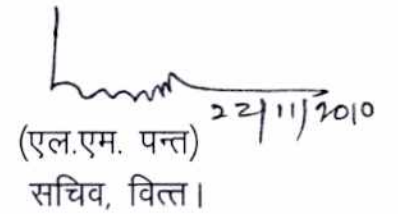 22/11/2010
(एल.एम. पन्त)
सचिव, वित्त।